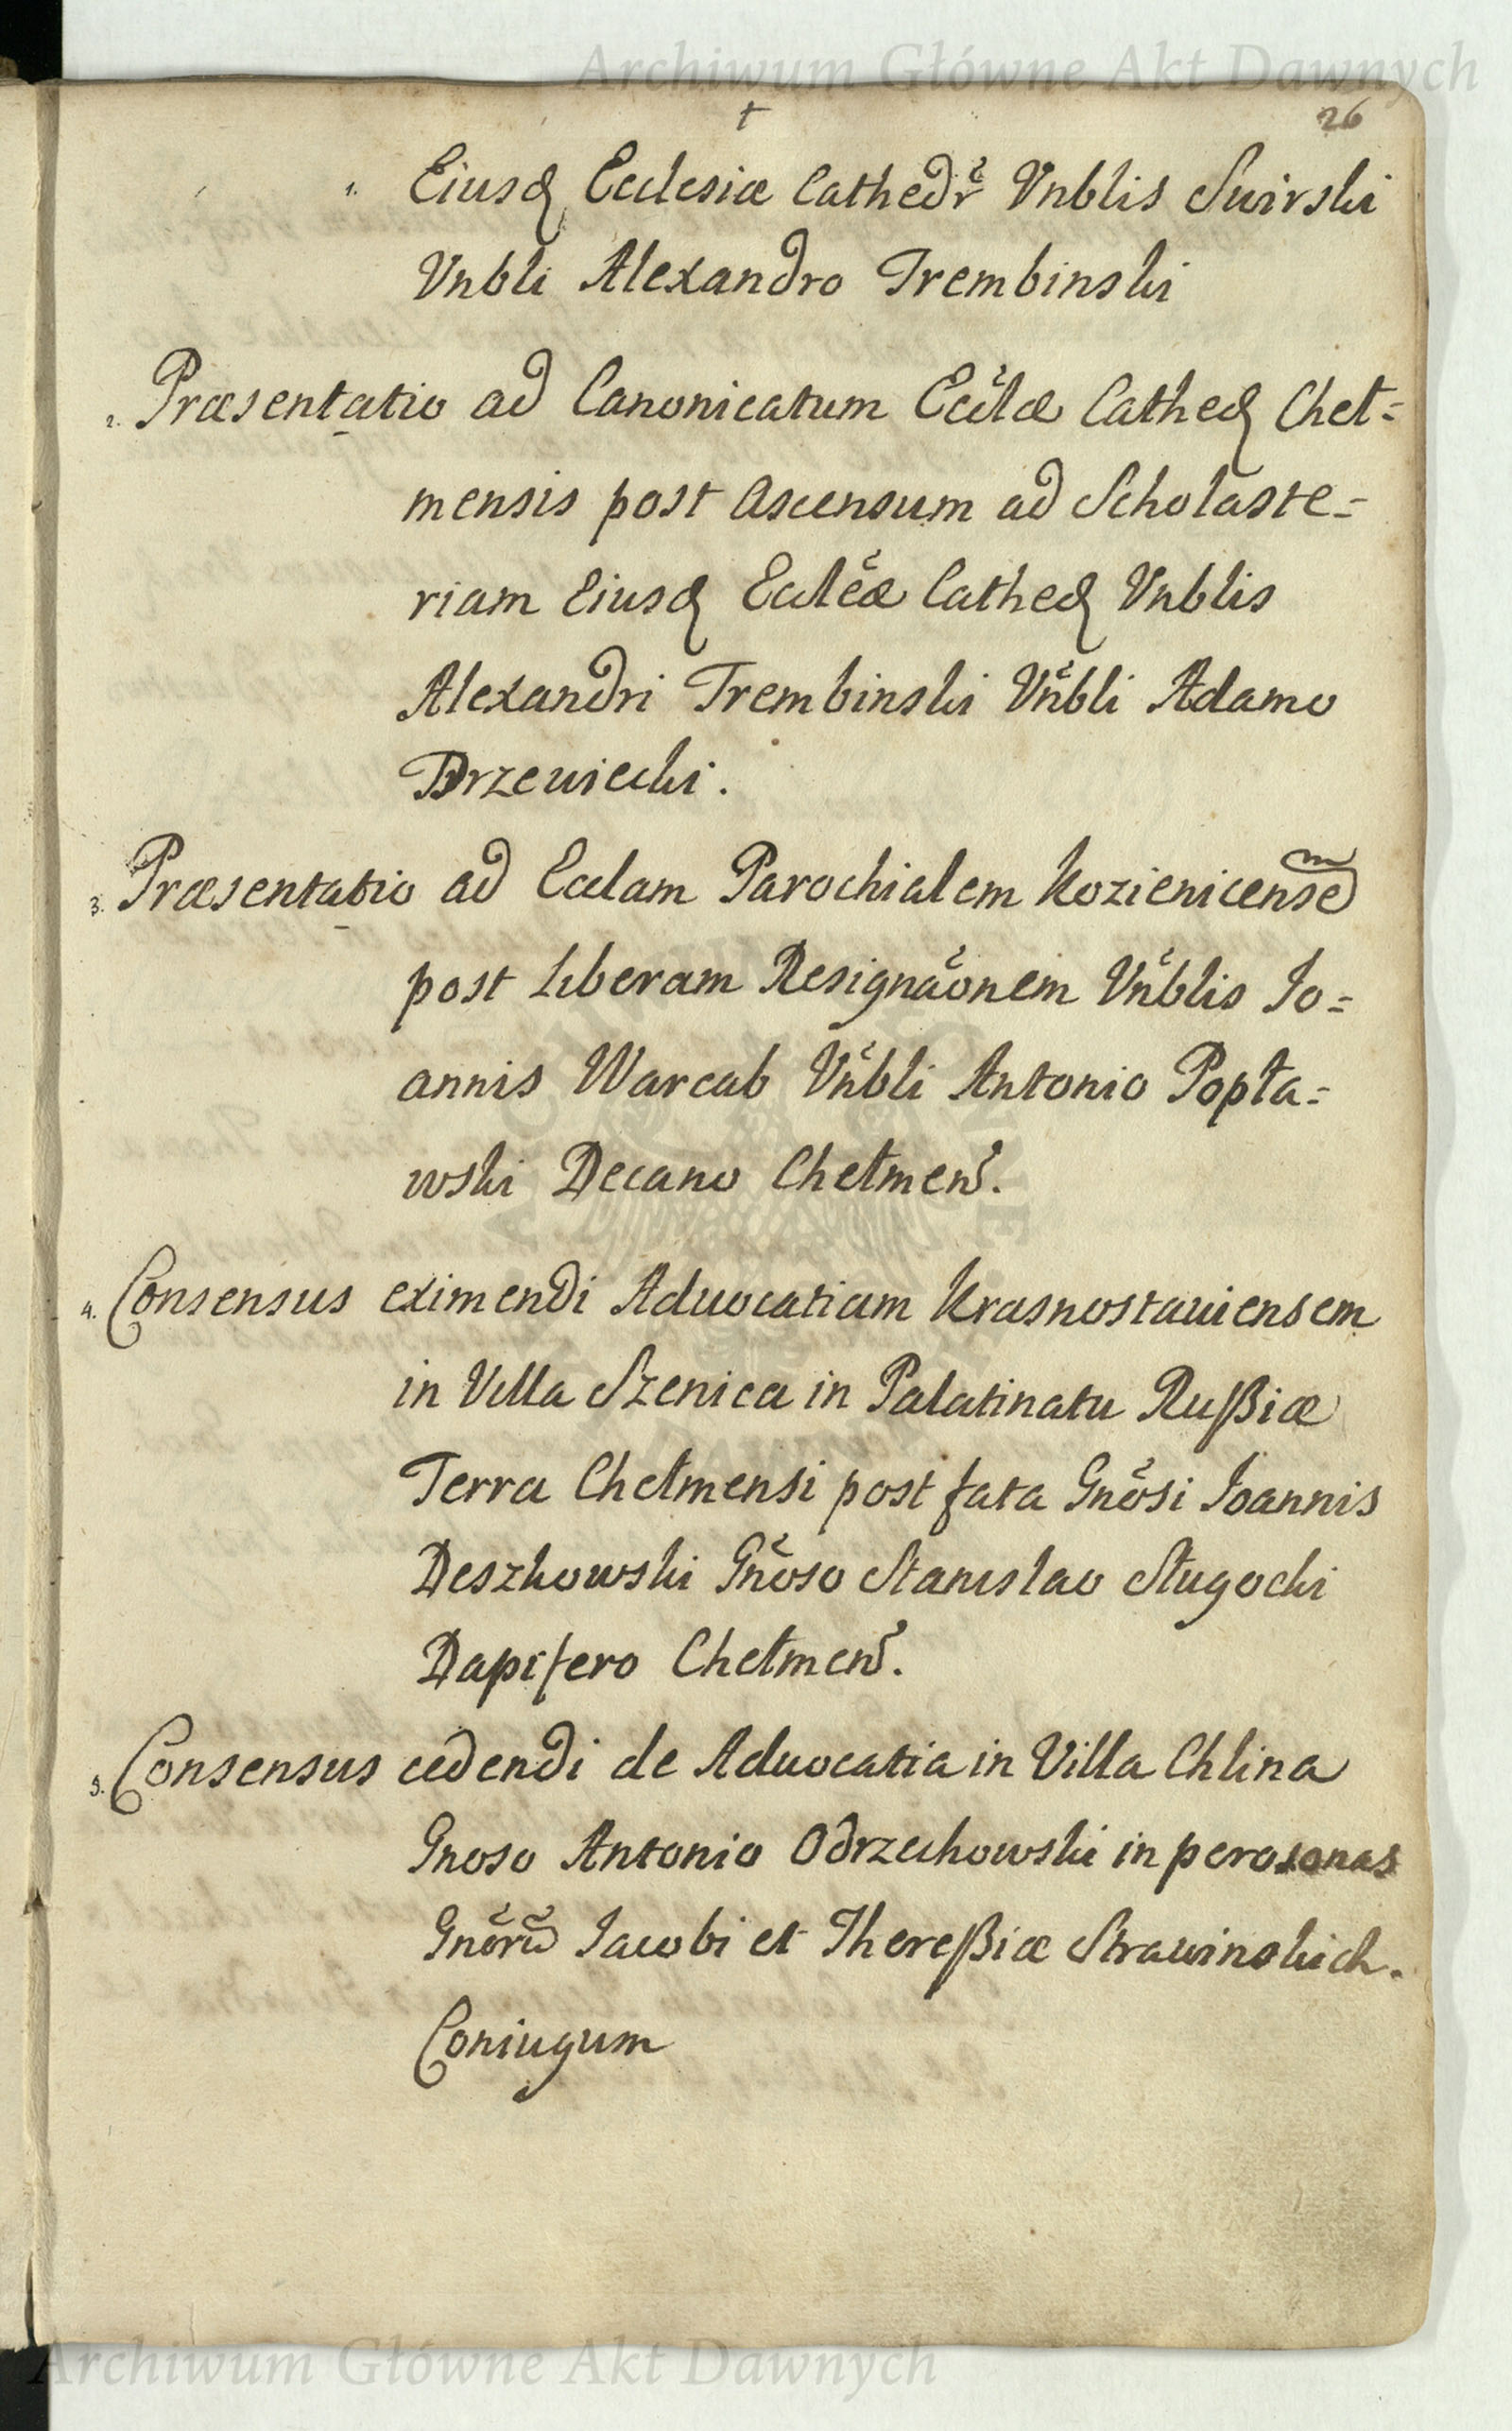 Archiwum Główne Akt Dawnych
†
26
1. Eiusq Ecclesiæ Cathedr̃ Vnblis Swirski
Vnbli Alexandro Trembinski
2. Præsentatio ad Canonicatum Eccłæ Catheq Cheł=
mensis post Ascensum ad Scholaste=
riam Eiusq Eccleæ Catheq Vnblis
Alexandri Trembinski Vñbli Adamo
Drzewiecki.
3. Præsentatio ad Ecclam Parochialem Kozienicensem
post Liberam Resignãonem Vñblis Io=
annis Warcab Vñbli Antonio Popła=
wski Decano Chełmen̄.
4. Consensus eximendi Aduocatiam Krasnostauiensem
in Villa Szenica in Palatinatu Rußiæ
Terra Chełmensi post fata Gnõsi Ioannis
Deszkowski Gnõso Stanislao Sługocki
Dapifero Chełmen̄.
5. Consensus cedendi de Aduocatia in Villa Chlina
Gnoso Antonio Odrzechowski in perosonas
Gnõrũ Iacobi et Thereßiæ Strawinskich.
Coniugum
Archiwum Główne Akt Dawnych